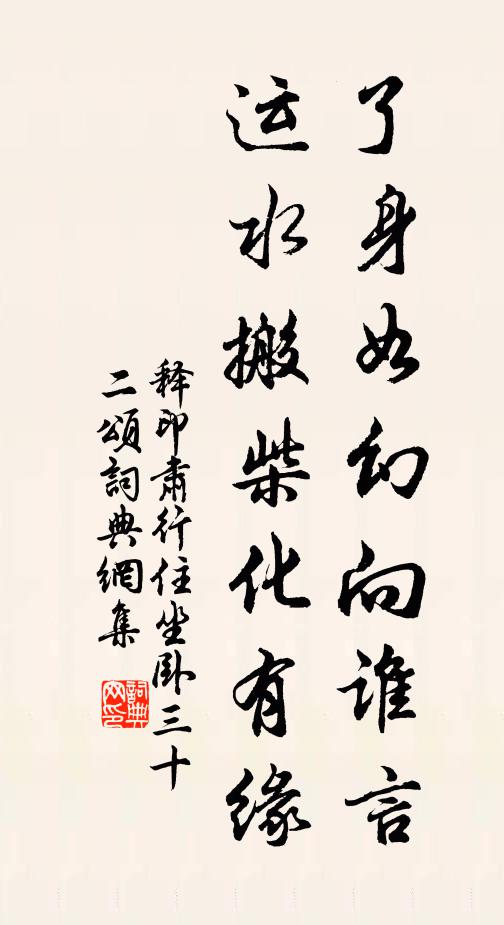 了身如幻向谁言
运水搬柴化有缘
释印肃行住坐卧三十
二頌詞典網集
詞典
网印